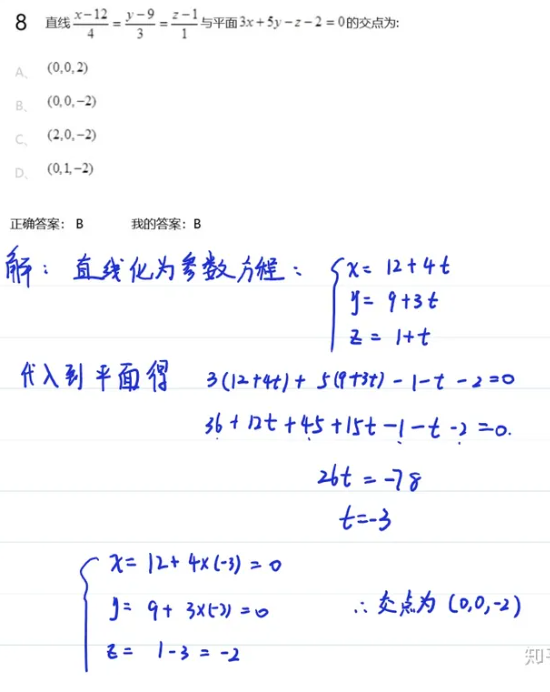 8 直线 (x-12)/4 = (y-9)/3 = (z-1)/1 与平面 3x+5y-z-2=0 的交点为:
A、 (0,0,2)
B、 (0,0,-2)
C、 (2,0,-2)
D、 (0,1,-2)
正确答案： B 我的答案：B
解：直线化为参数方程：{ x= 12+4t
y= 9+3t
z= 1+t
代入到平面得 3(12+4t)+ 5(9+3t) - 1-t -2=0
36+12t+45+15t-1-t-2=0.
26t = -78
t=-3
{ x= 12+4×(-3) = 0
y= 9+ 3×(-3)=0 ∴交点为 (0,0,-2)
z= 1-3 = -2
知